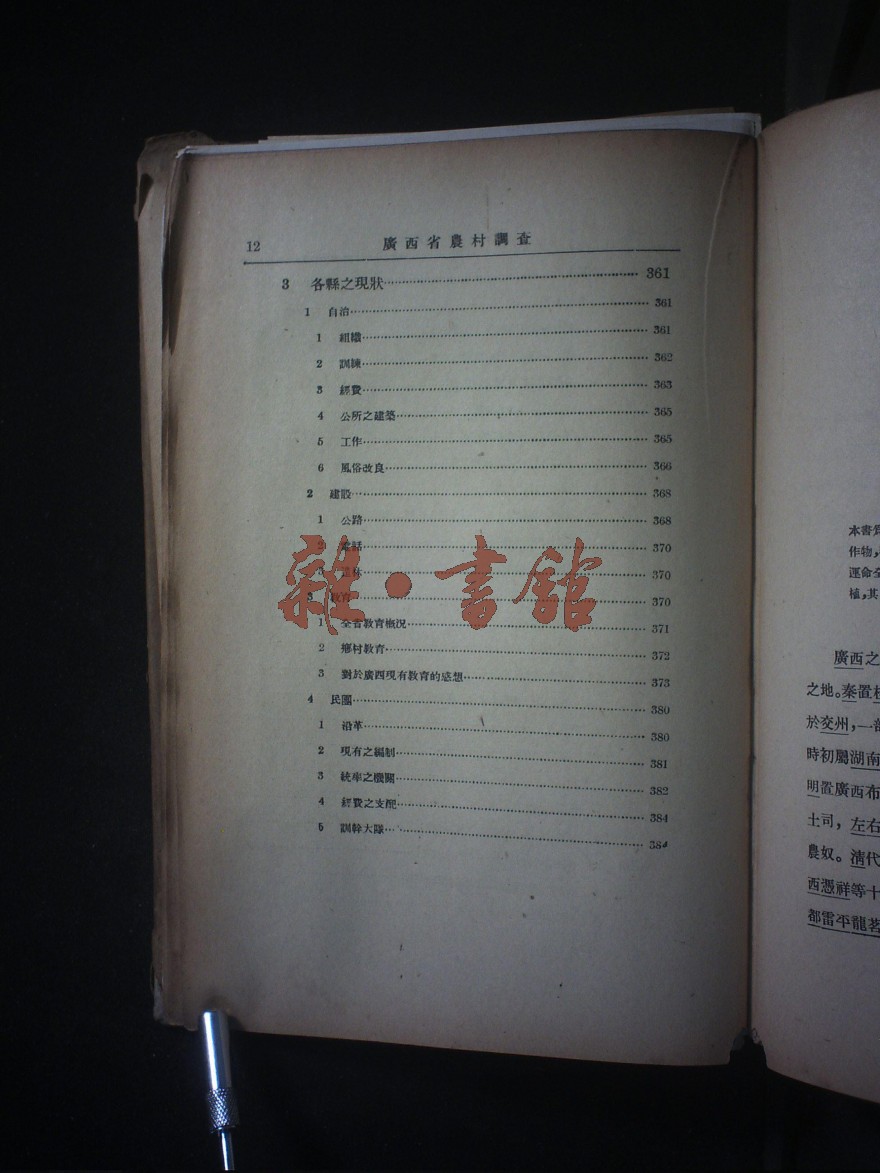 12 廣西省農村調查
3 各縣之現狀 361
1 自治 361
1 組織 361
2 訓練 362
3 經費 363
4 公所之建築 365
5 工作 365
6 風俗改良 366
2 建設 368
1 公路 368
2 電話 370
3 造林 370
3 教育 370
1 全省教育概況 371
2 鄉村教育 372
3 對於廣西現有教育的感想 373
4 民團 380
1 沿革 380
2 現有之編制 381
3 統率之機關 382
4 經費之支配 384
5 訓幹大隊 384
雜·書館
本書
作物,
運命全
植,其
廣西之
之地。秦置
於交州,一部
時初屬湖南
明置廣西布
土司,左右
農奴。清代
西憑祥等十
都雷平龍茗